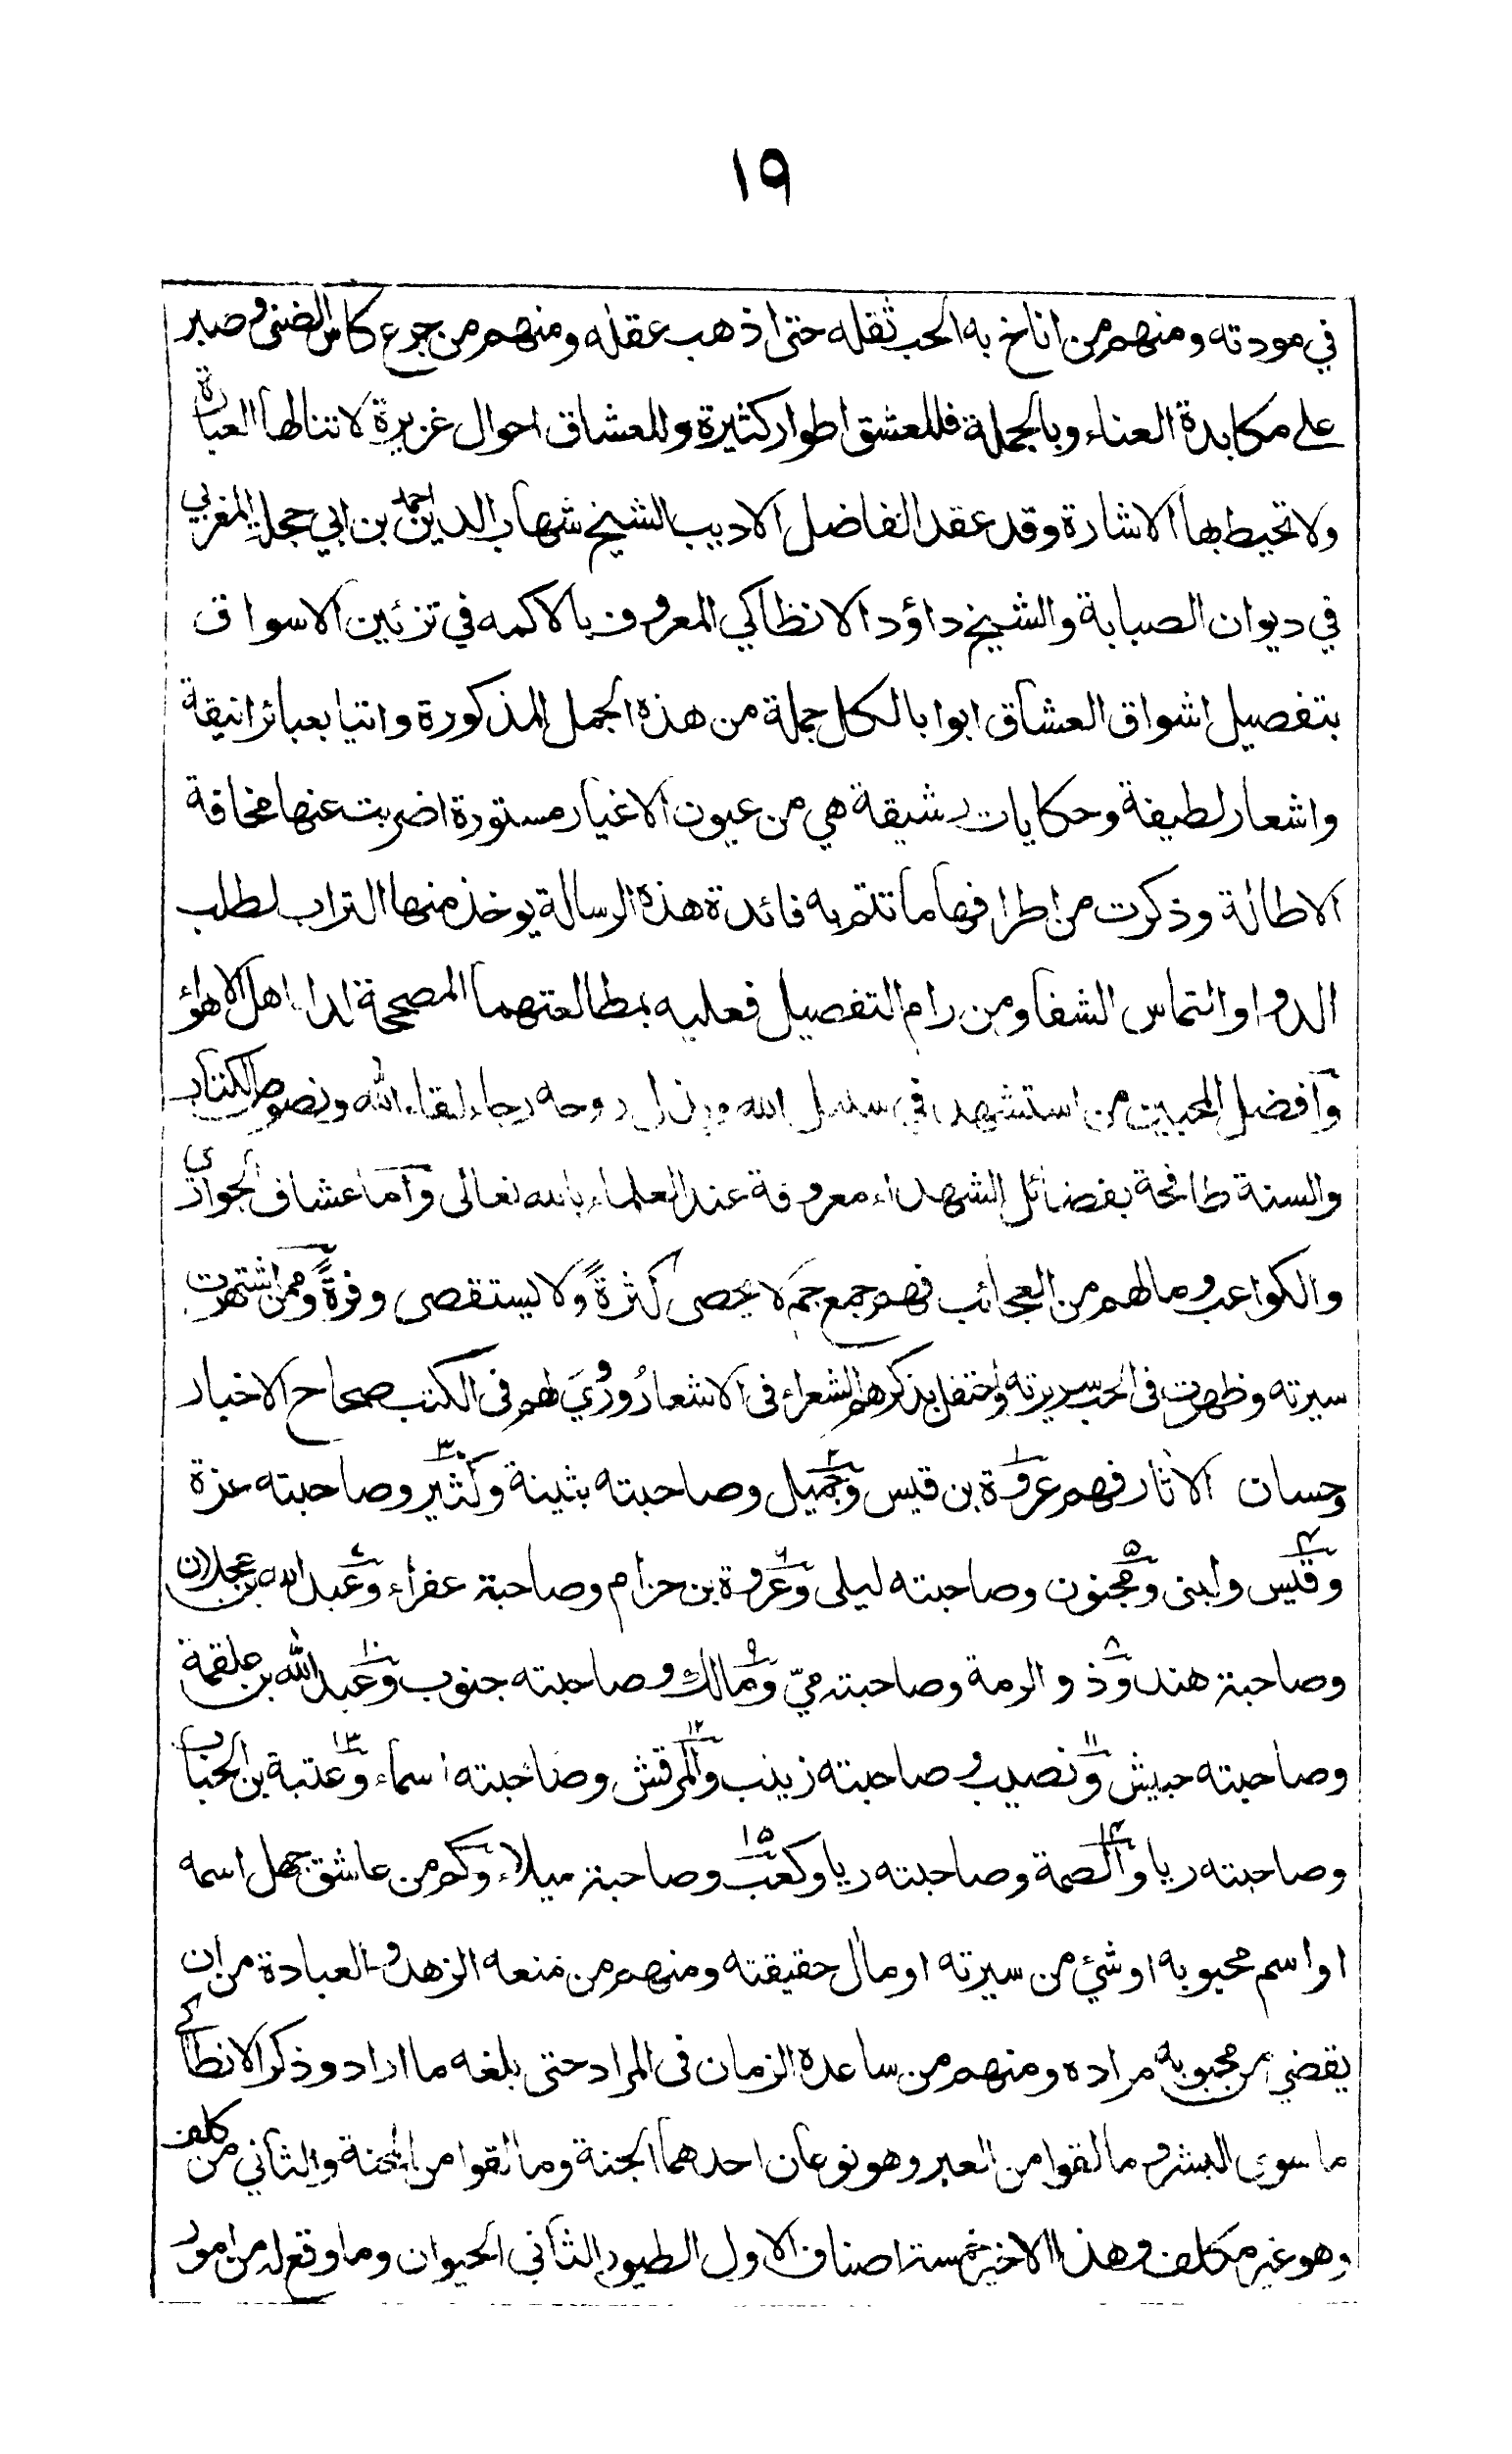 ١٩
في مودته ومنهم من اناخ به الحب ثقله حتى اذهب عقله ومنهم من جرع كاس الضنى وصبر
على مكابدة العناء وبالجملة فللعشق اطوار كثيرة وللعشاق احوال غزيرة لا تنالها العبارة
ولا تحيط بها الاشارة وقد عقد الفاضل الاديب الشيخ شهاب الدين احمد بن ابي حجلة المغربي
في ديوان الصبابة والشيخ داؤد الانطاكي المعروف بالاكمه في تزئين الاسواق
بتفصيل اشواق العشاق ابوابا لكل جملة من هذه الجمل المذكورة واتيا بعبائر انيقة
واشعار لطيفة وحكايات رشيقة هي من عيون الاغيار مستورة اضربت عنها مخافة
الاطالة وذكرت من اطرافها ما تتم به فائدة هذه الرسالة يوخذ منها التراب لطلب
الدوا والتماس الشفا ومن رام التفصيل فعليه بمطالعتهما المصححة لداء اهل الاهواء
وافضل المحبين من استشهد في سبيل الله وبذل روحه رجاء لقاء الله ونصوص الكتاب
والسنة طافحة بفضائل الشهداء معروفة عند العلماء بالله تعالى واما عشاق الجواري
والكواعب ومالهم من العجائب فهم جمع جم لا يحصى كثرةً ولا يستقصى وفرةً وممن اشتهرت
سيرته وظهرت في الحب سريرته واحتفل بذكرهم الشعراء في الاشعار ورُوِيَ لهم في الكتب صحاح الاخبار
وحسان الاثار فهم عروة بن قيس ١ وجميل ٢ وصاحبته بثينة وكثير ٣ وصاحبته عزة
وقيس ٤ ولبنى ومجنون ٥ وصاحبته ليلى وعروة ٦ بن حزام وصاحبة عفراء وعبد الله ٧ بن عجلان
وصاحبة هند وذو ٨ الرمة وصاحبته ميّ ومالك ٩ وصاحبته جنوب وعبد الله ١٠ بن علقمة
وصاحبته حبيش ونصيب ١١ وصاحبته زينب والمرقش ١٢ وصاحبته اسماء وعتبة ١٣ بن الحباب
وصاحبته ريا والصمة ١٤ وصاحبته ريا وكعب ١٥ وصاحبة ميلاء وكم من عاشق جهل اسمه
او اسم محبوبه او شئ من سيرته او مال حقيقته ومنهم من منعه الزهد والعبادة من ان
يقضي من محبوبه مراده ومنهم من ساعده الزمان في المراد حتى بلغه ما اراد وذكر الانطاكي
ما سوى البشر وما لقوا من العبر وهو نوعان احدهما الجنة وما لقوا من المحنة والثاني من كلف
وهو غير مكلف وهذا الاخير خمسة اصناف الاول الطيور الثاني الحيوان وما وقع له من امور